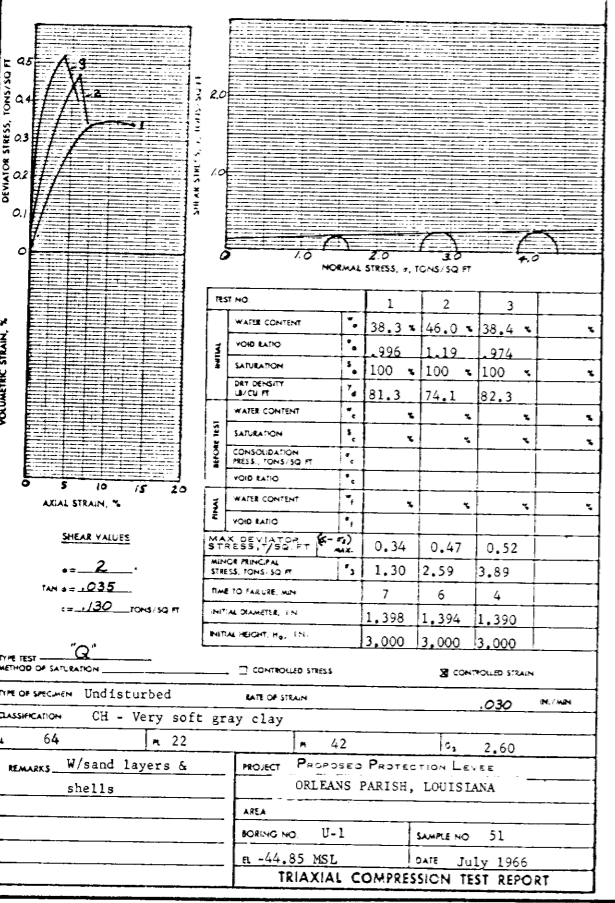 DEVIATOR STRESS, TONS/SQ FT
0.5
0.4
0.3
0.2
0.1
0
3
2
1
SHEAR STRESS, τ, TONS/SQ FT
2.0
1.0
0
0 1.0 2.0 3.0 4.0
NORMAL STRESS, σ, TONS/SQ FT
VOLUMETRIC STRAIN, %
0 5 10 15 20
AXIAL STRAIN, %
SHEAR VALUES
ø = 2 °
TAN ø = .035
c = .130 TONS/SQ FT
TEST NO 1 2 3
INITIAL
WATER CONTENT wo 38.3 % 46.0 % 38.4 % %
VOID RATIO eo .996 1.19 .974
SATURATION So 100 % 100 % 100 % %
DRY DENSITY LB/CU FT γd 81.3 74.1 82.3
BEFORE TEST
WATER CONTENT wc % % % %
SATURATION Sc % % % %
CONSOLIDATION PRESS., TONS/SQ FT σc
VOID RATIO ec
FINAL
WATER CONTENT wf % % % %
VOID RATIO ef
MAX DEVIATOR STRESS, T/SQ. FT (σ1-σ3) MAX. 0.34 0.47 0.52
MINOR PRINCIPAL STRESS, TONS/SQ FT σ3 1.30 2.59 3.89
TIME TO FAILURE, MIN 7 6 4
INITIAL DIAMETER, IN. 1.398 1.394 1.390
INITIAL HEIGHT, Ho, IN. 3.000 3.000 3.000
TYPE TEST "Q"
METHOD OF SATURATION CONTROLLED STRESS CONTROLLED STRAIN
TYPE OF SPECIMEN Undisturbed RATE OF STRAIN .030 IN./MIN
CLASSIFICATION CH - Very soft gray clay
64 PL 22 PI 42 Gs 2.60
REMARKS W/sand layers &
shells
PROJECT PROPOSED PROTECTION LEVEE
ORLEANS PARISH, LOUISIANA
AREA
BORING NO. U-1 SAMPLE NO 51
EL -44.85 MSL DATE July 1966
TRIAXIAL COMPRESSION TEST REPORT